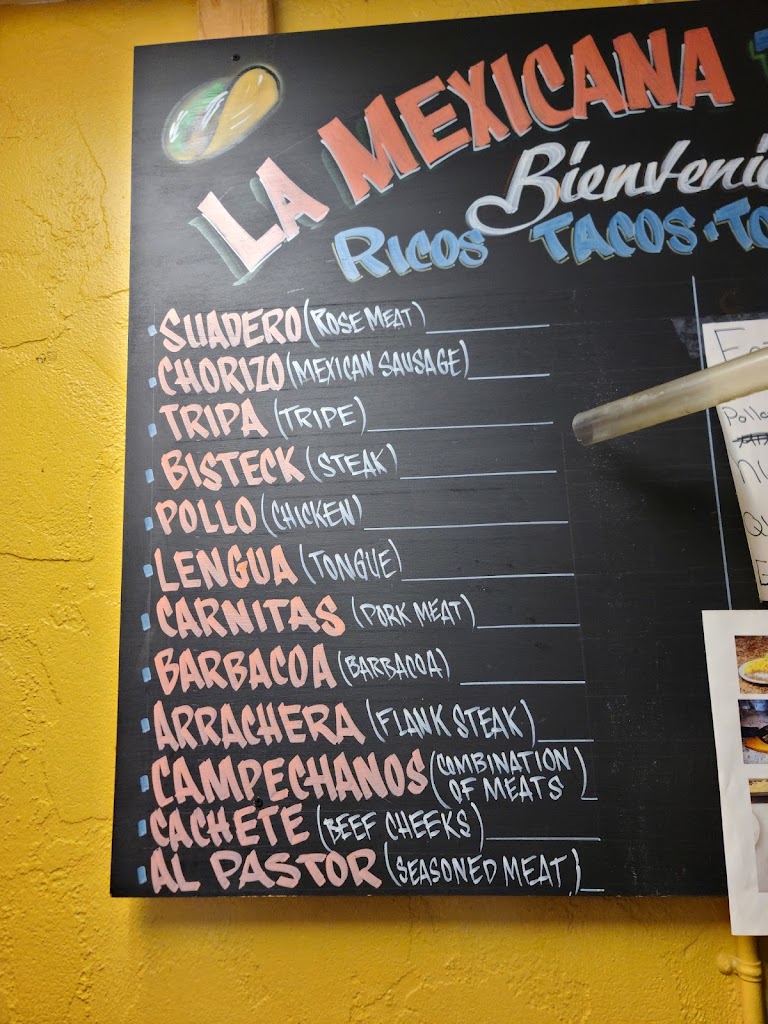 LA MEXICANA
Bienveni
RICOS TACOS · TO
SUADERO (ROSE MEAT)
CHORIZO (MEXICAN SAUSAGE)
TRIPA (TRIPE)
BISTECK (STEAK)
POLLO (CHICKEN)
LENGUA (TONGUE)
CARNITAS (PORK MEAT)
BARBACOA (BARBACOA)
ARRACHERA (FLANK STEAK)
CAMPECHANOS (COMBINATION
OF MEATS)
CACHETE (BEEF CHEEKS)
AL PASTOR (SEASONED MEAT)